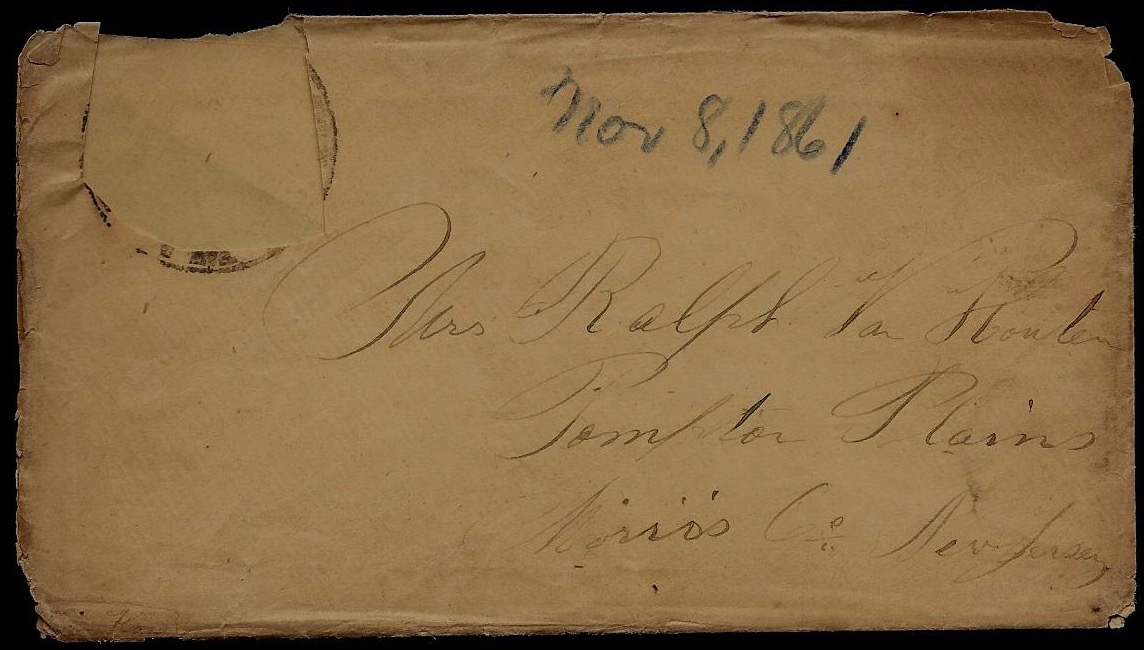 Nov 8, 1861
Mrs Ralph Van Houten
Pompton Plains
Morris Co. New Jersey